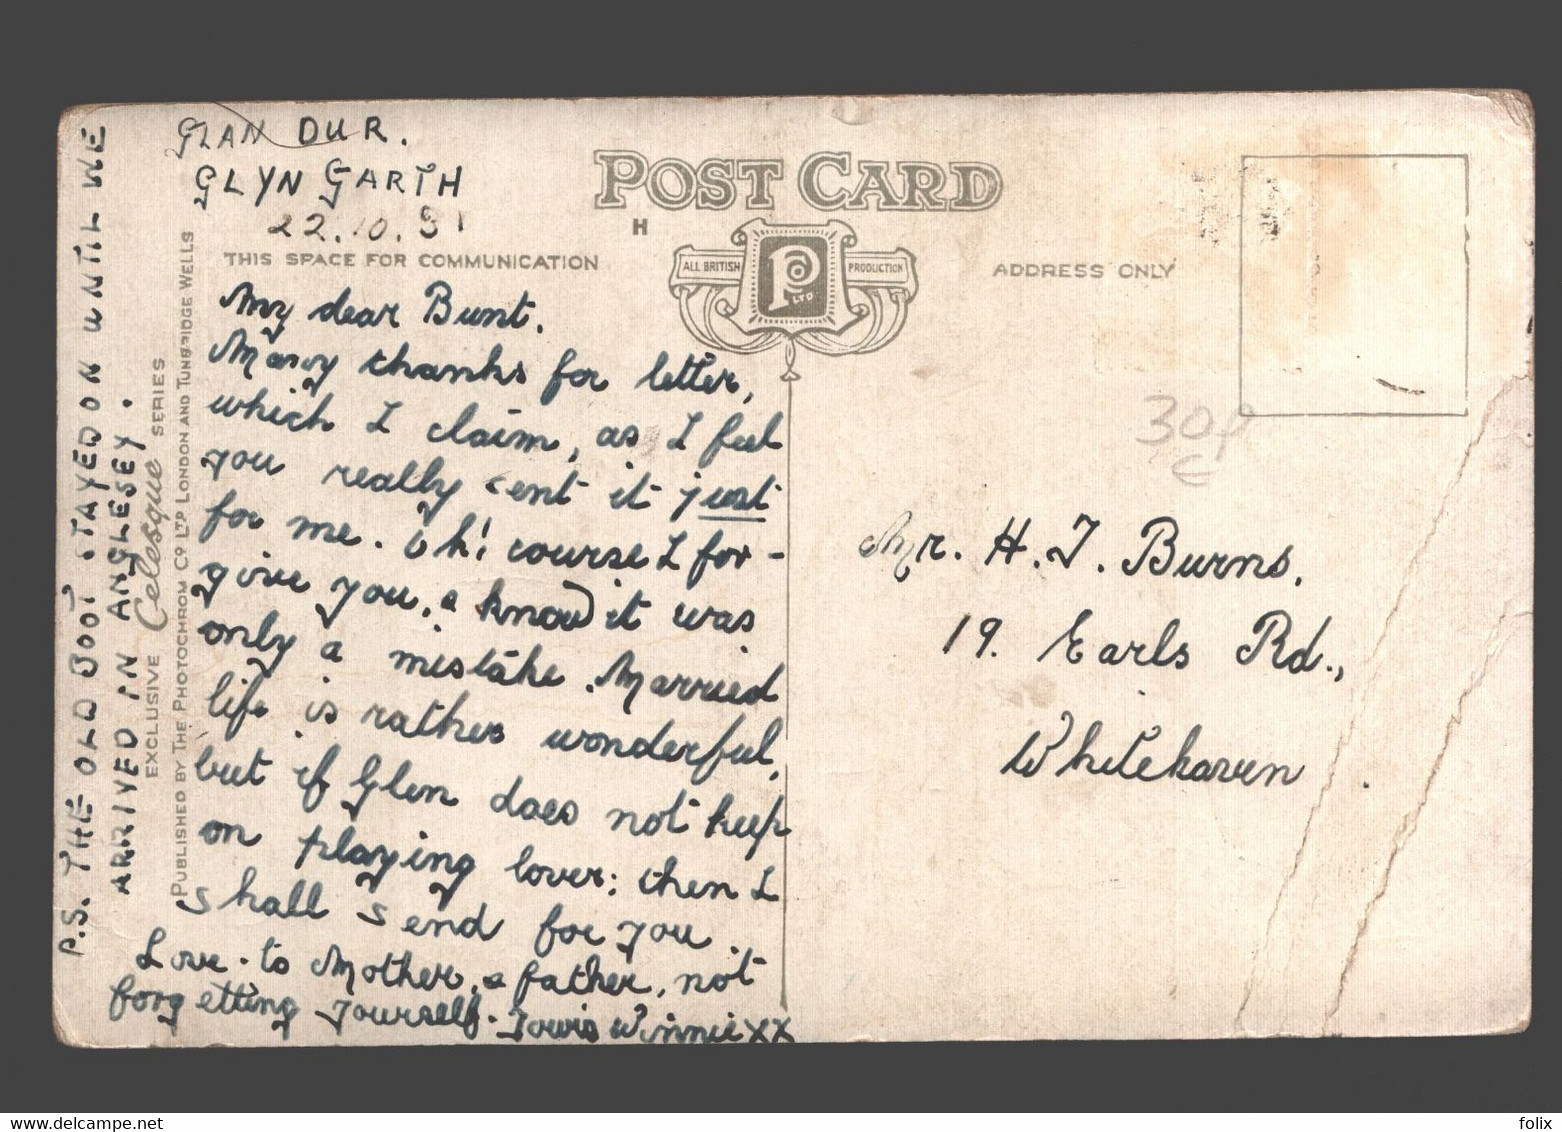 GLAN DUR.
GLYN GARTH
22.10.31
THIS SPACE FOR COMMUNICATION
My dear Bunt.
Many thanks for letter,
which I claim, as I feel
you really sent it just
for me. Oh! course I for-
give you, & know it was
only a mistake. Married
life is rather wonderful,
but if Glen does not keep
on playing lover; then I
shall send for you.
Love to Mother, & father, not
forgetting yourself. Yours Winnie XX
P.S. THE OLD BOOT STAYED ON UNTIL WE
ARRIVED IN ANGLESEY.
EXCLUSIVE Celesque SERIES
PUBLISHED BY THE PHOTOCHROM CO LTD LONDON AND TUNBRIDGE WELLS
POST CARD
H
ALL BRITISH P Co LTD PRODUCTION
ADDRESS ONLY
30p
Mr. H. J. Burns.
19. Earls Rd.,
Whitehaven.
folix